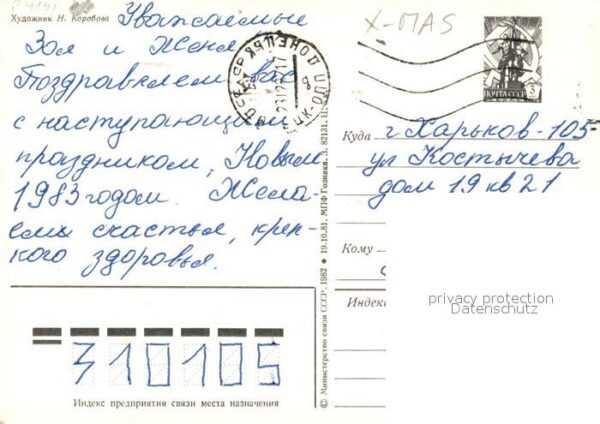 Художник Н. Коробова
Уважаемые
Зоя и Женя
Поздравляем вас
с наступающим
праздником, Новым
1983 годом. Жела-
ем счастья, креп-
кого здоровья.
X-MAS
ПОЧТА СССР
Куда г. Харьков-105
ул Костычева
дом 19 кв 21
Кому
Индекс
privacy protection
Datenschutz
310105
Индекс предприятия связи места назначения
© Министерство связи СССР. 1982 ● 19.10.81. МПФ Гознака.